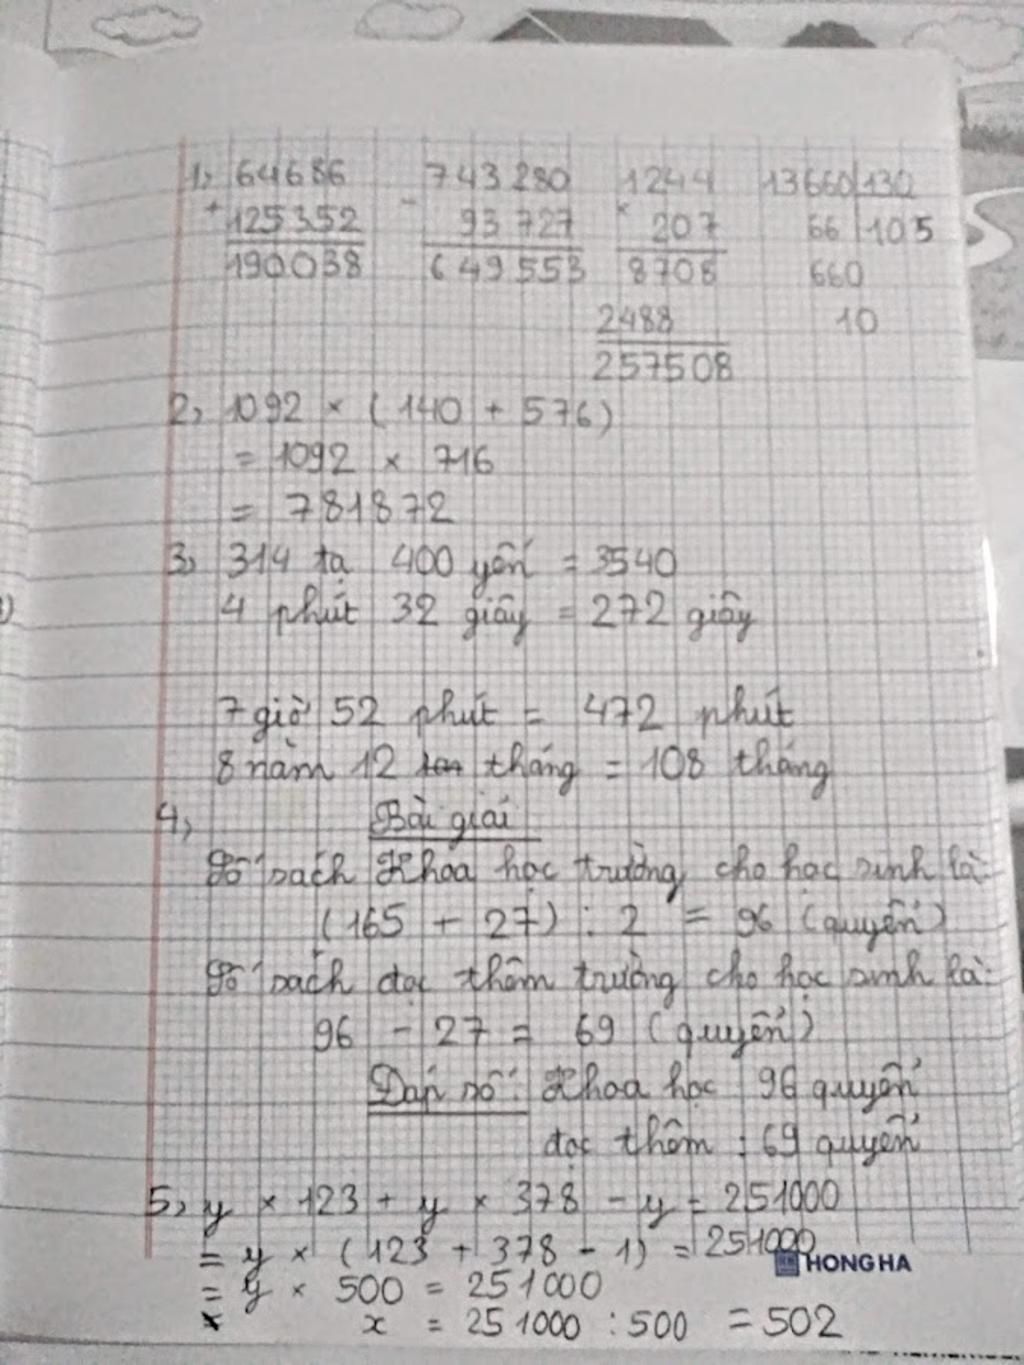 1, 64686 743280 1244 13660 130
+ 125352 - 93727 × 207 66 105
190038 649553 8708 660
2488 10
257508
2, 1092 × (140 + 576)
= 1092 × 716
= 781872
3, 314 tạ 400 yến = 3540
4 phút 32 giây = 272 giây
7 giờ 52 phút = 472 phút
8 năm 12 tháng = 108 tháng
4, Bài giải
Số sách Khoa học trường cho học sinh là:
(165 + 27) : 2 = 96 (quyển)
Số sách đọc thêm trường cho học sinh là:
96 - 27 = 69 (quyển)
Đáp số: Khoa học : 96 quyển
đọc thêm : 69 quyển
5, y × 123 + y × 378 - y = 251000
= y × (123 + 378 - 1) = 251000
HONG HA
= y × 500 = 251000
x = 251000 : 500 = 502